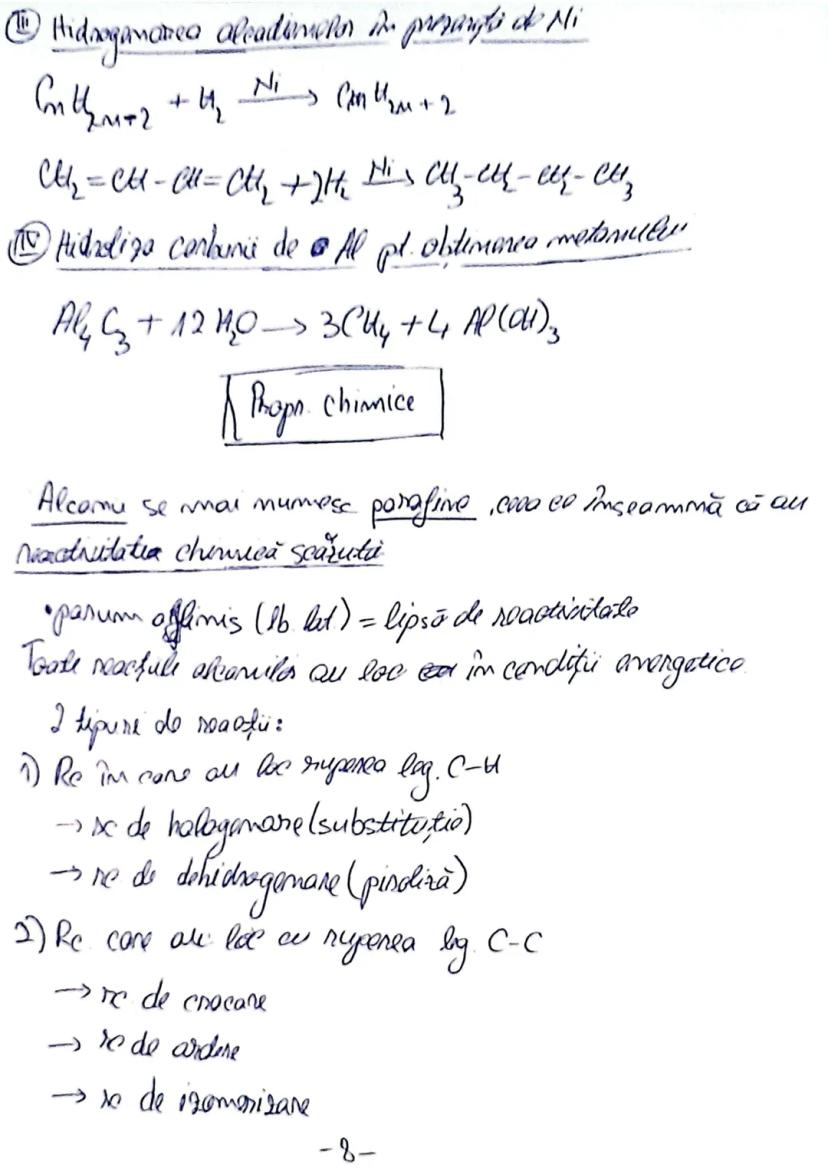 III Hidrogenarea alcadienelor în prezența de Ni
CnH2n+2 + H2 Ni → CnH2n+2
CH2=CH-CH=CH2 + 2H2 Ni → CH3-CH2-CH2-CH3
IV Hidroliza carburii de Al pt. obtinerea metanului
Al4C3 + 12H2O → 3CH4 + 4 Al(OH)3
Propr. chimice
Alcanii se mai numesc parafine, ceea ce înseamnă că au
reactivitatea chimică scăzută
•parum affinis (lb lat) = lipsă de reactivitate
Toate reacțiile alcanilor au loc în condiții energetice
2 tipuri de reacții:
1) Rc în care au loc ruperea leg. C-H
→ rc de halogenare (substituție)
→ rc de dehidrogenare (piroliză)
2) Rc care au loc cu ruperea leg. C-C
→ rc de cracare
→ rc de ardere
→ rc de izomerizare
-8-